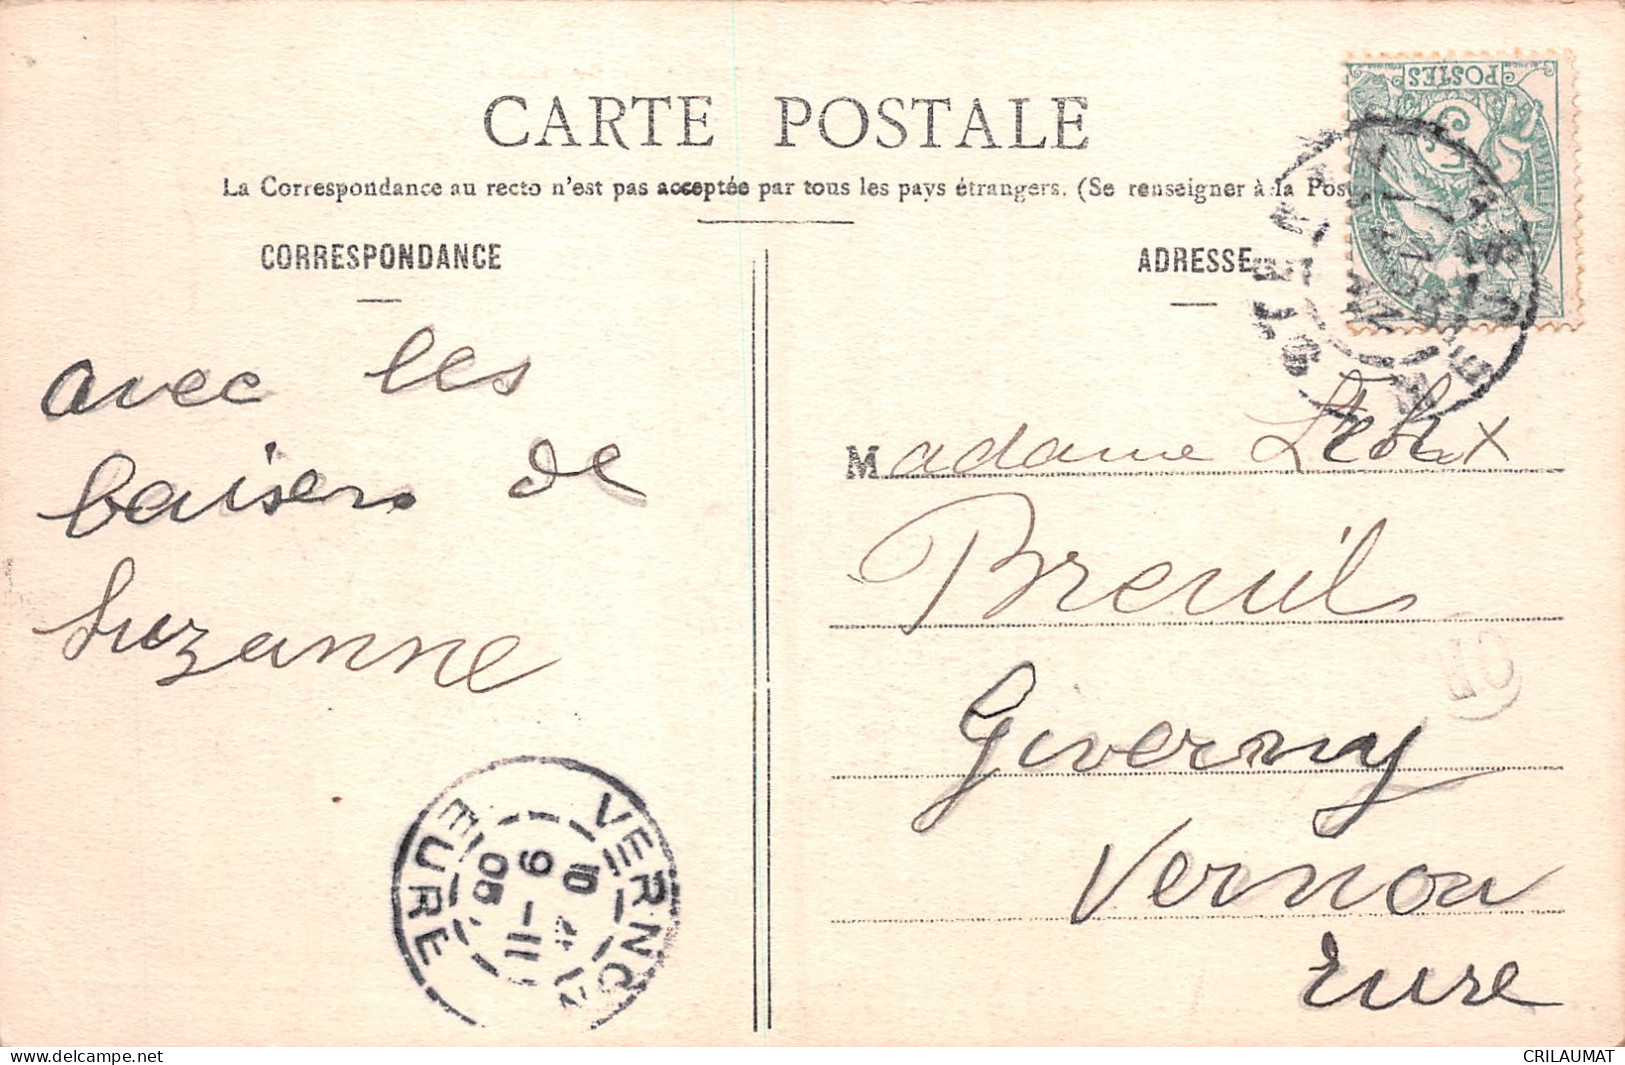 CARTE POSTALE
La Correspondance au recto n'est pas acceptée par tous les pays étrangers. (Se renseigner à la Pos
CORRESPONDANCE
ADRESSE
POSTES
avec les
baisers de
Suzanne
Madame
Breuil
Giverny
Vernon
Eure
VERNON
EURE
10
11-9
05
CRILAUMAT